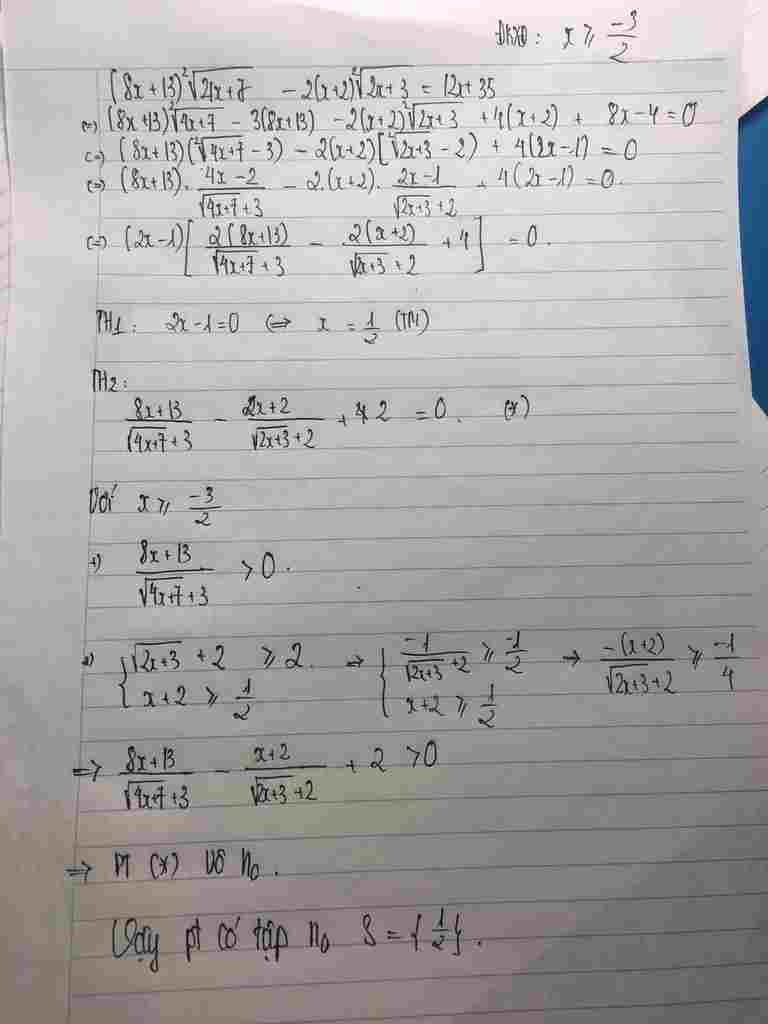 ĐKXĐ: x ≥ -3/2
(8x+13)²√(4x+7) - 2(x+2)²√(2x+3) = 12x+35
(=) (8x+13)²√(4x+7) - 3(8x+13) - 2(x+2)²√(2x+3) + 4(x+2) + 8x-4 = 0
(=) (8x+13)(²√(4x+7) - 3) - 2(x+2)[²√(2x+3) - 2) + 4(2x-1) = 0
(=) (8x+13). (4x-2)/(√(4x+7)+3) - 2.(x+2). (2x-1)/(√(2x+3)+2) + 4(2x-1) = 0.
(=) (2x-1)[2(8x+13)/(√(4x+7)+3) - 2(x+2)/(√(2x+3)+2) + 4] = 0.
TH1: 2x-1=0 (=> x = 1/2 (TM)
TH2:
(8x+13)/(√(4x+7)+3) - (x+2)/(√(2x+3)+2) + 2 = 0. (*)
Với x ≥ -3/2
+) (8x+13)/(√(4x+7)+3) > 0.
+) { √(2x+3) + 2 ≥ 2. x+2 ≥ 1/2 => { -1/(√(2x+3)+2) ≥ -1/2 x+2 ≥ 1/2 => -(x+2)/(√(2x+3)+2) ≥ -1/4
=> (8x+13)/(√(4x+7)+3) - (x+2)/(√(2x+3)+2) + 2 > 0
=> PT (*) vô n₀.
Vậy pt có tập n₀ S = {1/2}.